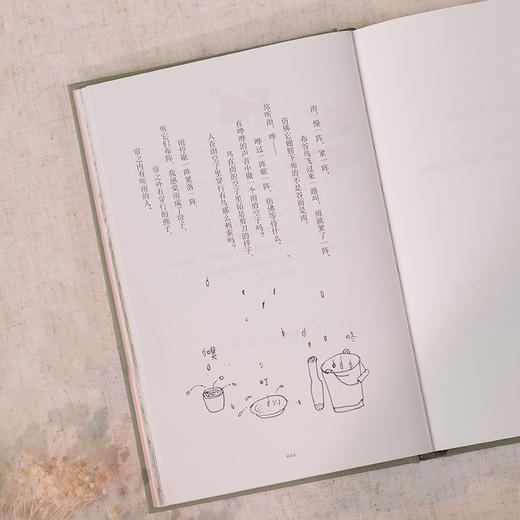 雨，慢一阵，紧一阵，
布谷鸟飞过来一路叫，雨就紧了一阵，
仿佛它翅膀下布的不是谷而是雨。
你听雨，哗——
哗过一阵歇一阵，仿佛等待什么。
在哗哗的声音中做一个雨的空子吗？
鸟在雨的空子里钻是剪刀的样子，
人在雨空子里穿行有鸟那么利索吗？
雨停歇一阵紧落一阵，
听它们布阵，我感觉雨成了帘子，
帘之外有穿行的燕子，
帘之内有听雨的人。
咚
叮
噗